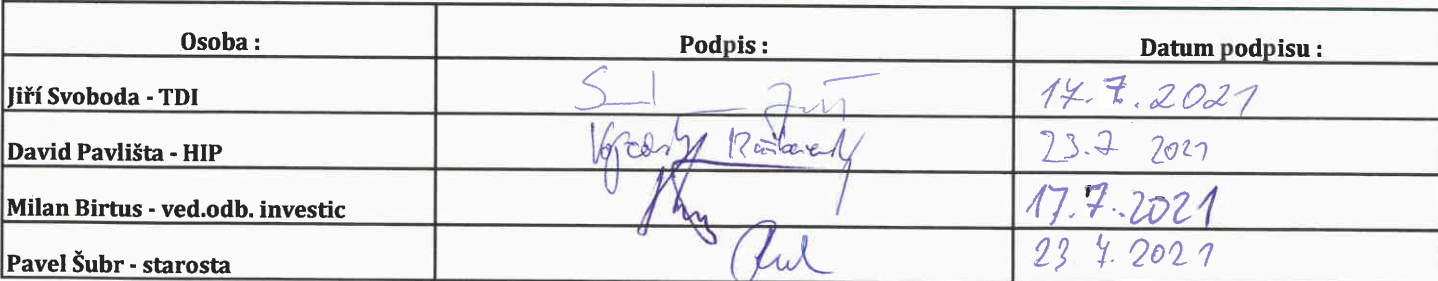 Osoba : Podpis : Datum podpisu :
Jiří Svoboda - TDI 17.7.2021
David Pavlišta - HIP 23.7 2021
Milan Birtus - ved.odb. investic 17.7.2021
Pavel Šubr - starosta 23 7. 2021